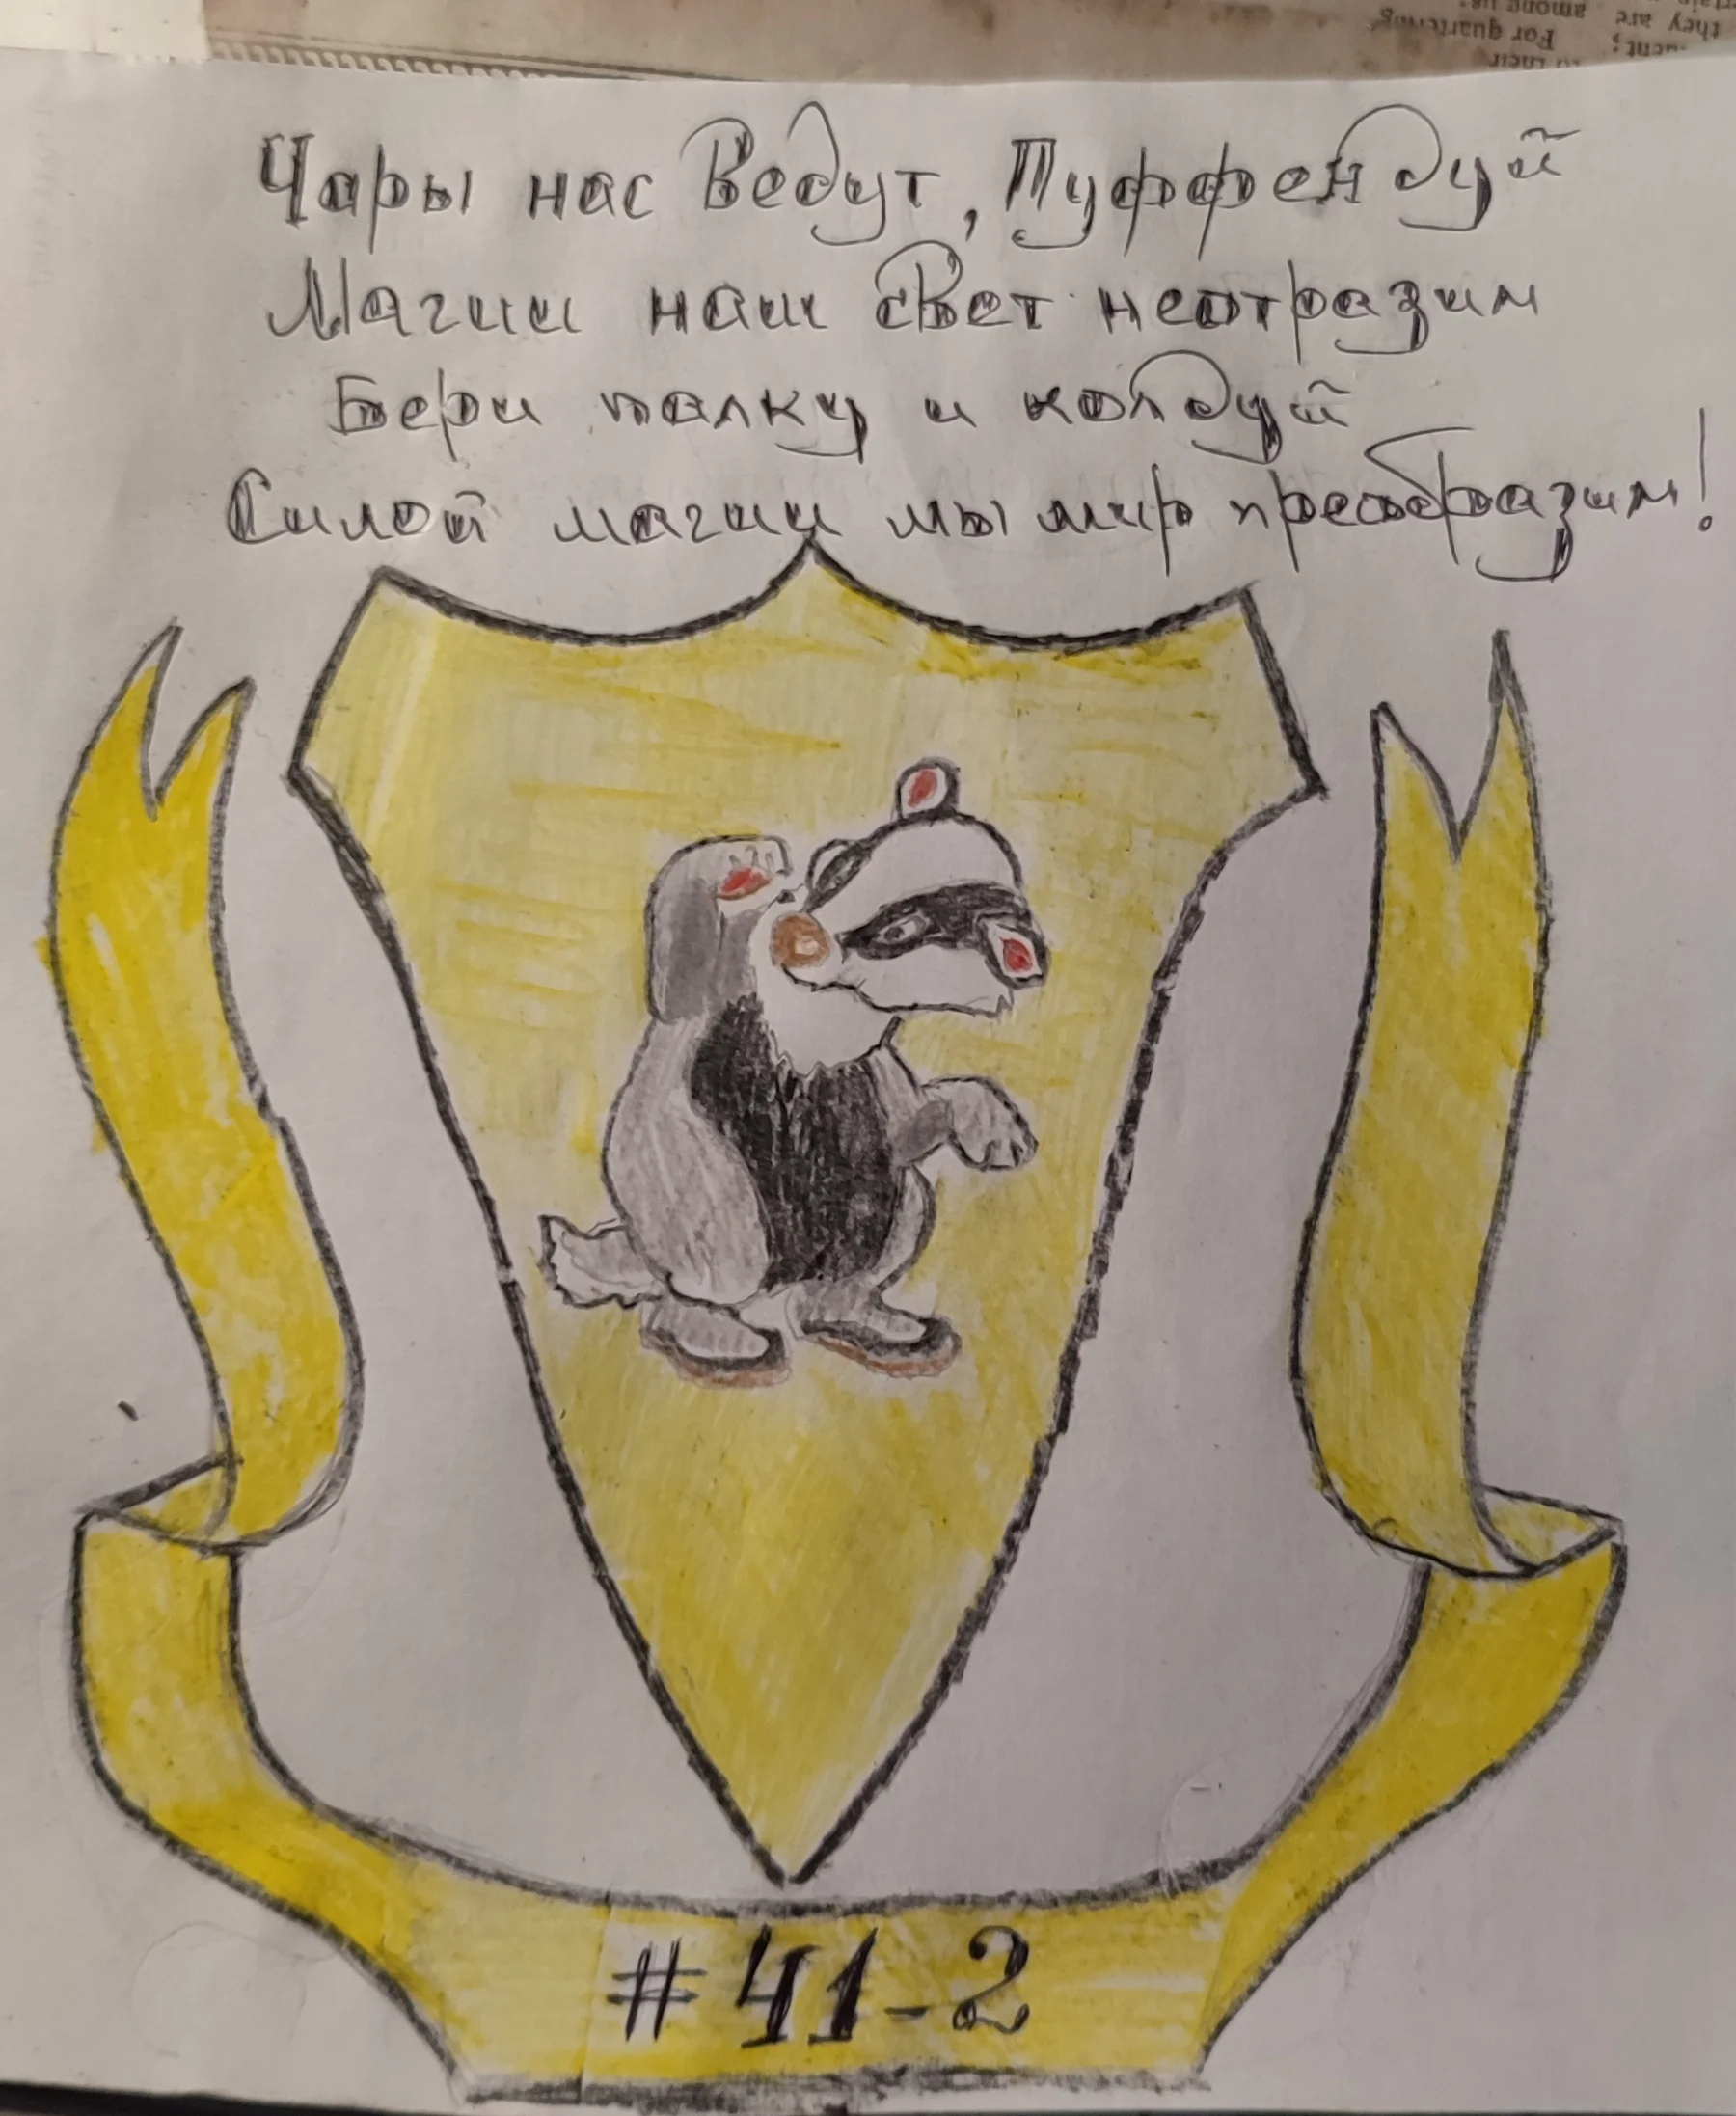 among us.
they are
For quartering
uent;
to their
Чары нас Ведут, Пуффендуй
Магии наш свет неотразим
Бери палку и колдуй
Силой магии мы мир преобразим!
#41-2